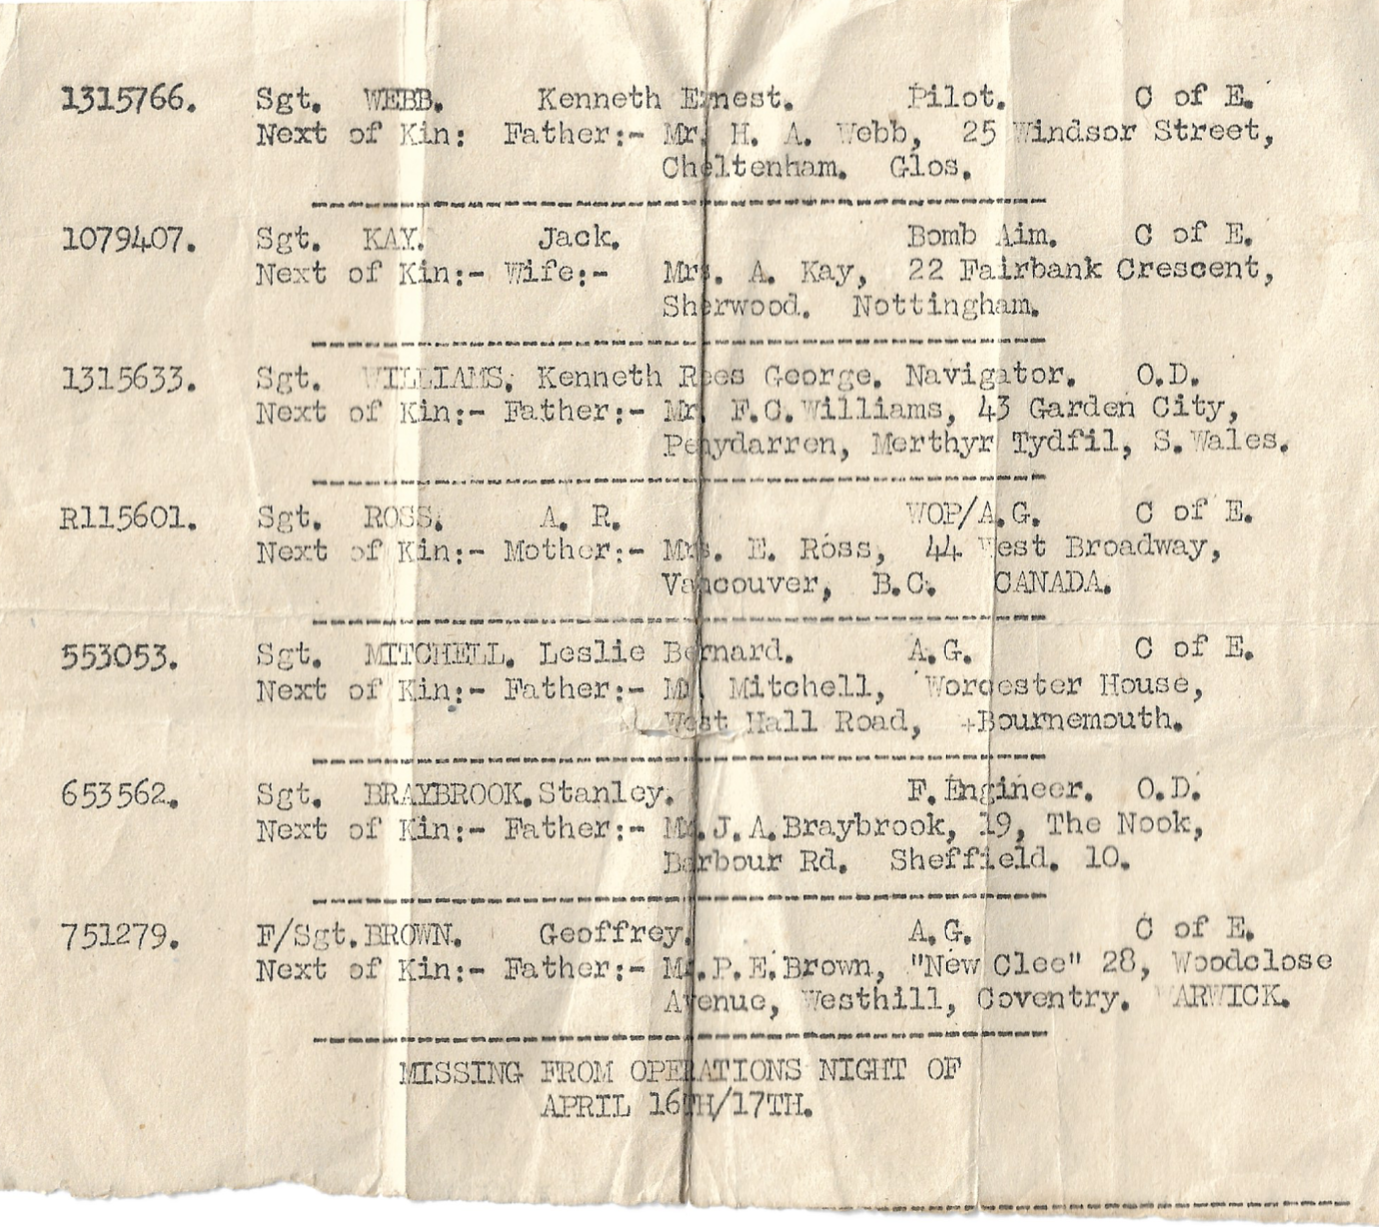 1315766. Sgt. WEBB. Kenneth Ernest. Pilot. C of E.
Next of Kin: Father:- Mr. H. A. Webb, 25 Windsor Street,
Cheltenham. Glos.
1079407. Sgt. KAY. Jack. Bomb Aim. C of E.
Next of Kin:- Wife:- Mrs. A. Kay, 22 Fairbank Crescent,
Sherwood. Nottingham.
1315633. Sgt. WILLIAMS. Kenneth Rees George. Navigator. O.D.
Next of Kin:- Father:- Mr. F.C.Williams, 43 Garden City,
Penydarren, Merthyr Tydfil, S.Wales.
R115601. Sgt. ROSS. A. R. WOP/A.G. C of E.
Next of Kin:- Mother:- Mrs. E. Ross, 44 West Broadway,
Vancouver, B.C. CANADA.
553053. Sgt. MITCHELL. Leslie Bernard. A.G. C of E.
Next of Kin:- Father:- Mr. Mitchell, Worcester House,
West Hall Road, Bournemouth.
653562. Sgt. BRAYBROOK. Stanley. F.Engineer. O.D.
Next of Kin:- Father:- Mr.J.A.Braybrook, 19, The Nook,
Barbour Rd. Sheffield. 10.
751279. F/Sgt. BROWN. Geoffrey. A.G. C of E.
Next of Kin:- Father:- Mr.P.E.Brown, "New Clee" 28, Woodclose
Avenue, Westhill, Coventry. WARWICK.
MISSING FROM OPERATIONS NIGHT OF
APRIL 16TH/17TH.